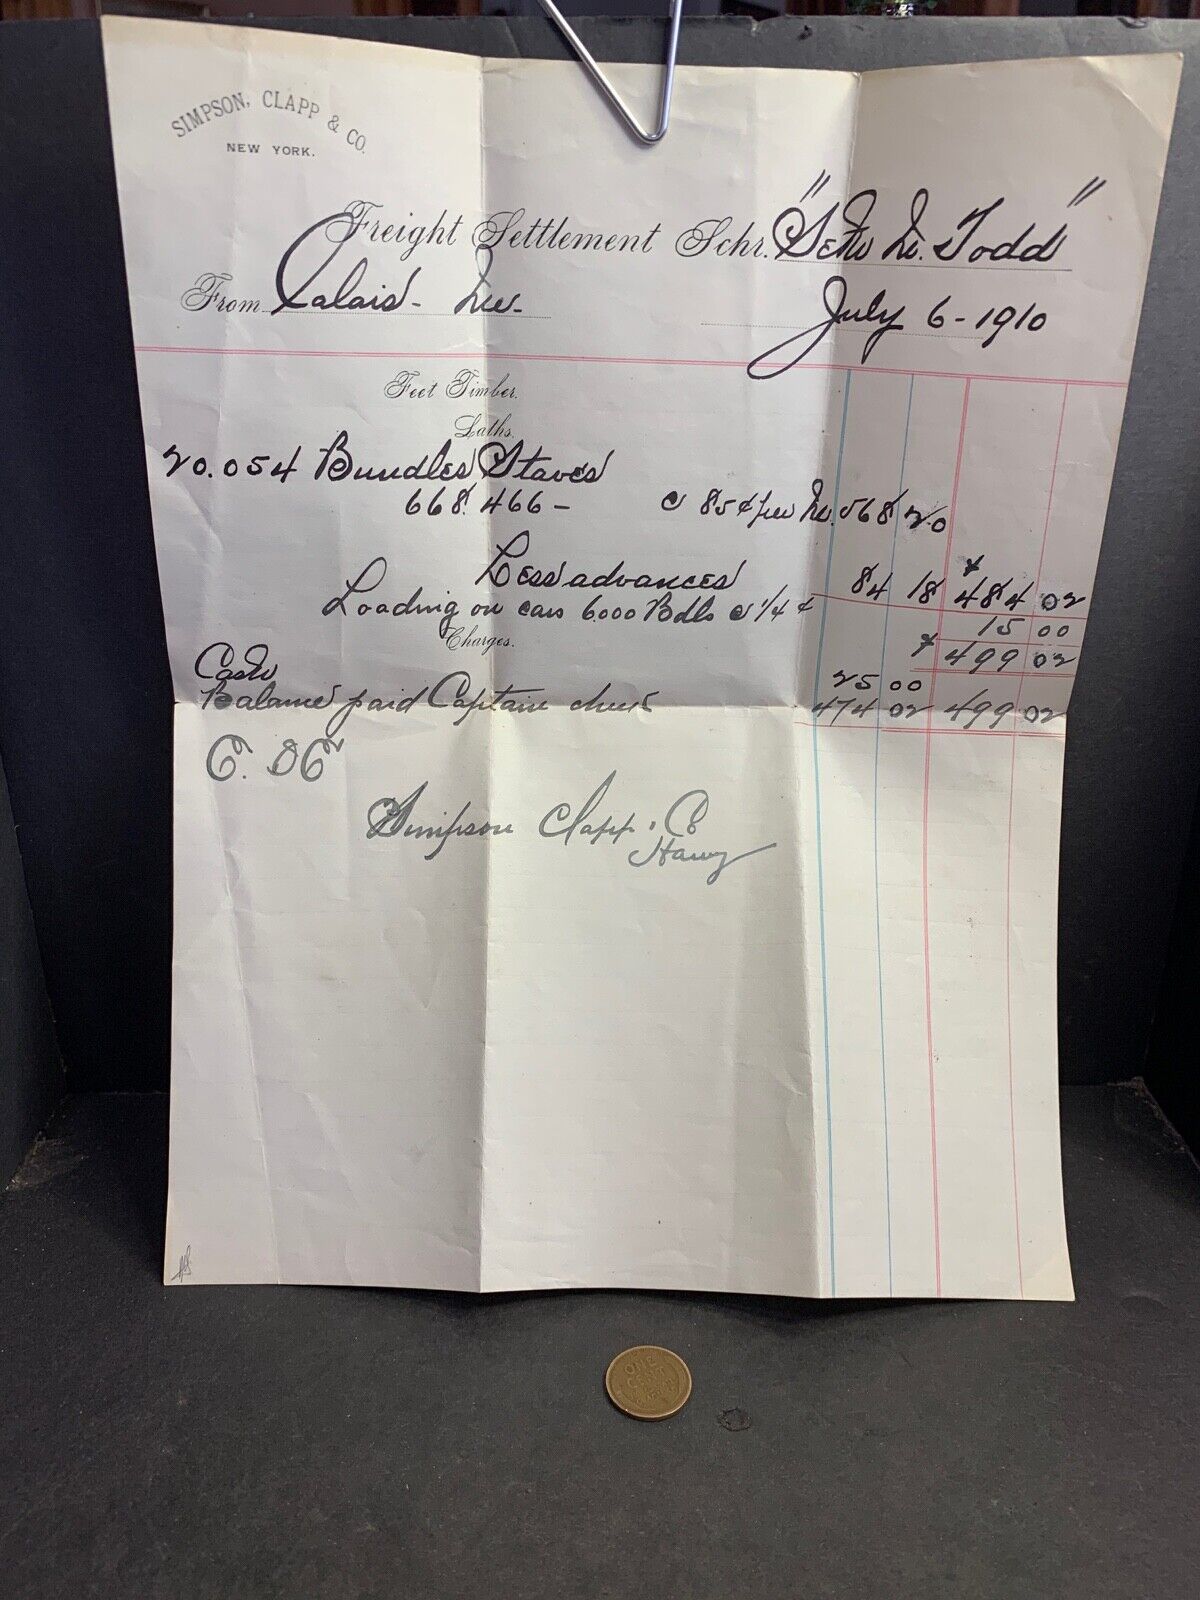 SIMPSON, CLAPP & CO.
NEW YORK.
Freight Settlement Schr. "Seth M. Todd"
From Calais - Me.
July 6 - 1910
Feet Timber.
Laths.
20.054 Bundles Staves
668.466 - @ 85¢ per M. 568 20
Less advances 84 18 484 02
Loading on cars 6000 Bdls @ 1/4 ¢ 15 00
Charges. 499 02
Cash 25 00
Balance paid Captain check 474 02 499 02
E. O E
Simpson Clapp & Co
ONE CENT